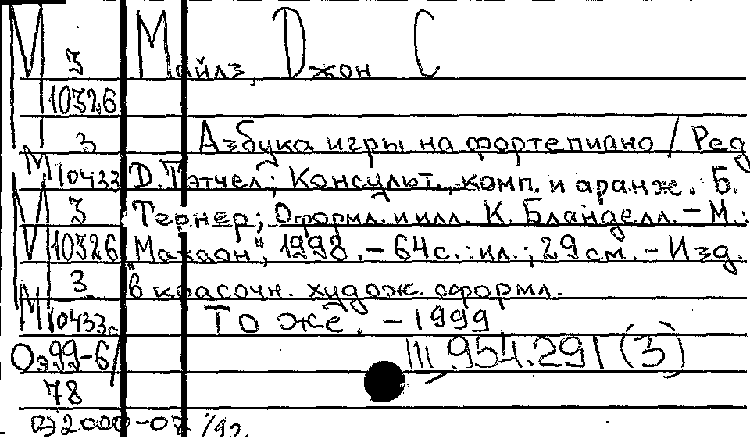 М 3 Майлз, Джон С
10326
3 Азбука игры на фортепиано / Ред
М 10433 Д. Тэтчел; Консульт., комп. и аранж. Б.
М 3 Тернер; Оформл. и илл. К. Бланделл. – М.:
10326 "Махаон", 1998. – 64 с.: ил.; 29 см. – Изд.
3 в красочн. худож. оформл.
М 10433 То же. – 1999
Оэ99-6/ III 954.291 (3)
78
2000-07 /92